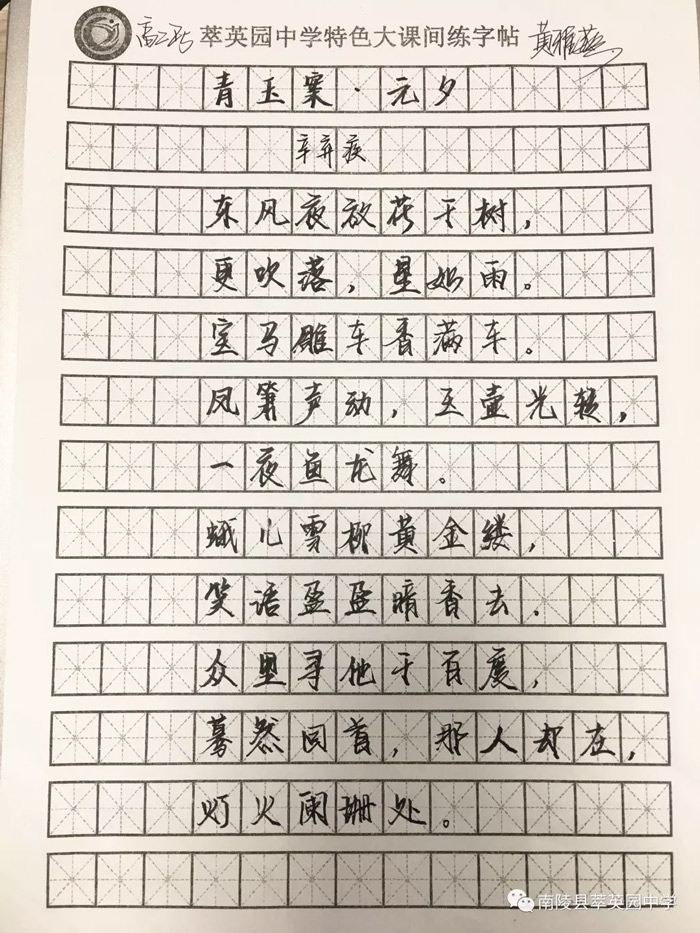 萃英园中学特色大课间练字帖
青玉案·元夕
辛弃疾
东风夜放花千树，
更吹落，星如雨。
宝马雕车香满车。
凤箫声动，玉壶光转，
一夜鱼龙舞。
蛾儿雪柳黄金缕，
笑语盈盈暗香去.
众里寻他千百度，
蓦然回首，那人却在，
灯火阑珊处。
南陵县萃英园中学